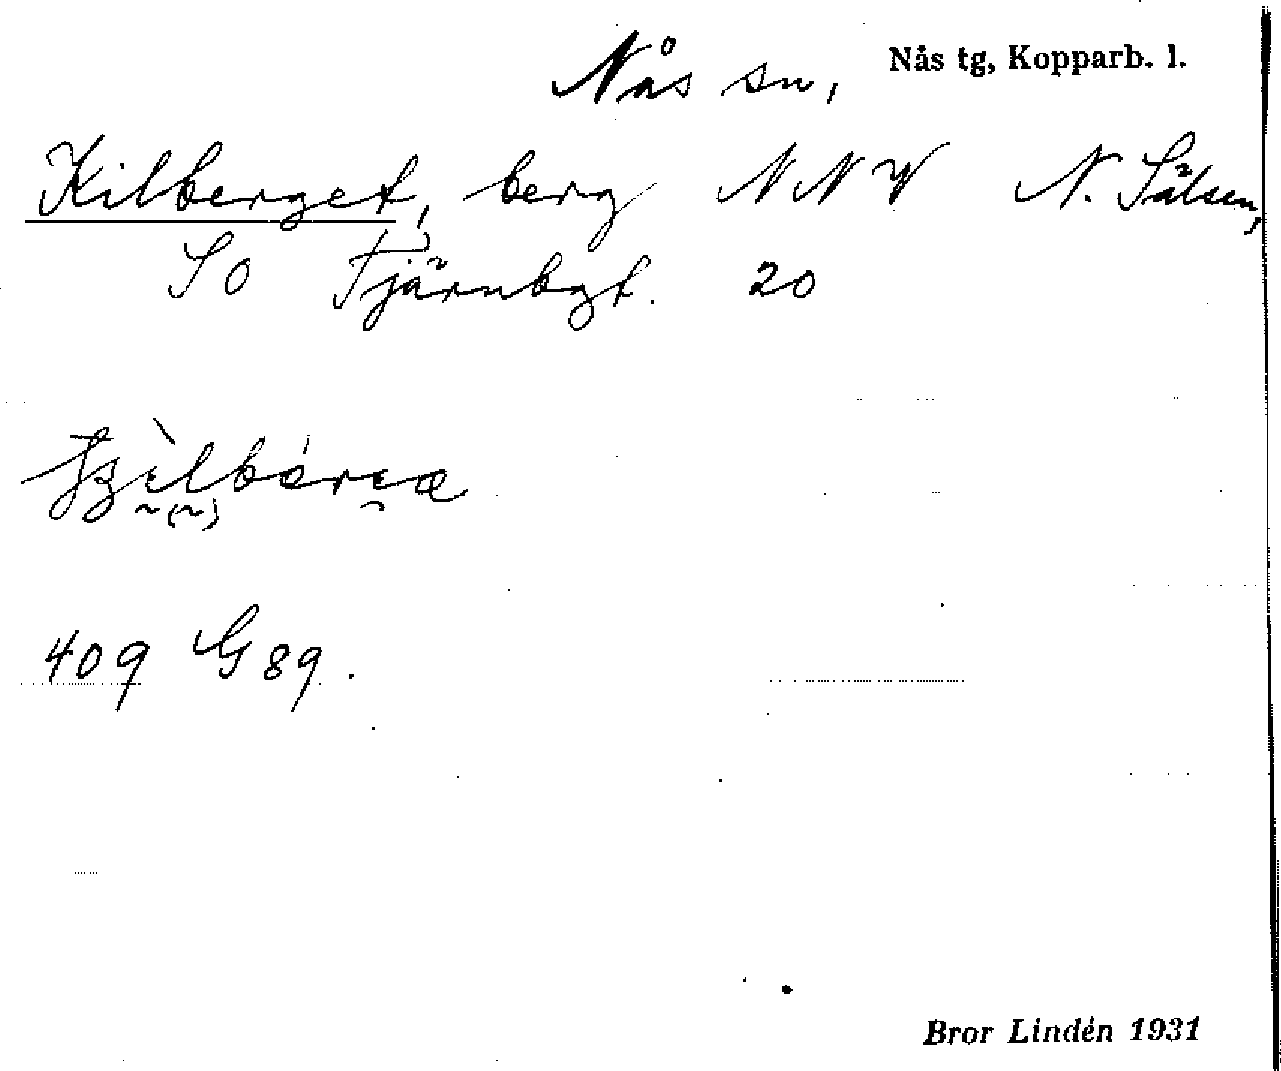 Nås sn, Nås tg, Kopparb. l.
Kilberget, berg NNV N. Sälsen,
SO Tjärnbgt. 20
409 G 89.
Bror Lindén 1931